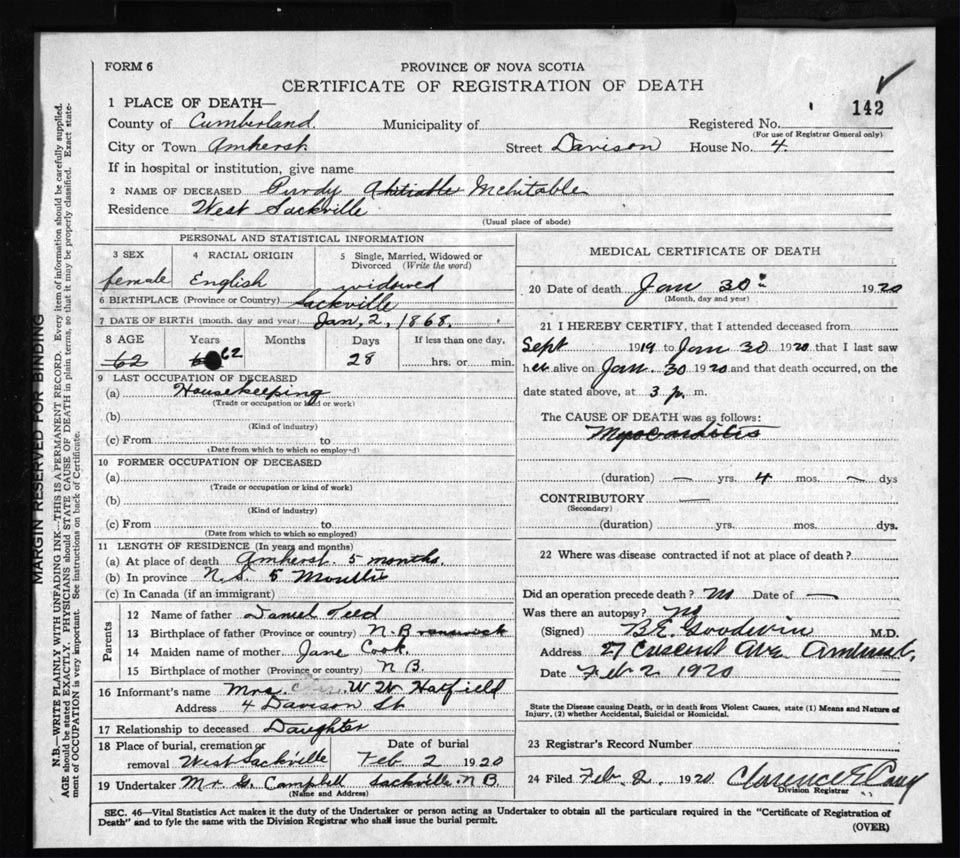 FORM 6
PROVINCE OF NOVA SCOTIA
CERTIFICATE OF REGISTRATION OF DEATH
142
1 PLACE OF DEATH—
County of Cumberland. Municipality of Registered No.
(For use of Registrar General only)
City or Town Amherst Street Davison House No. 4.
If in hospital or institution, give name
2 NAME OF DECEASED Purdy Mehitable
Residence West Sackville
(Usual place of abode)
PERSONAL AND STATISTICAL INFORMATION
3 SEX 4 RACIAL ORIGIN 5 Single, Married, Widowed or Divorced (Write the word)
female English widowed
6 BIRTHPLACE (Province or Country) Sackville
7 DATE OF BIRTH (month, day and year) Jan, 2, 1868.
8 AGE Years Months Days If less than one day,
62 62 28 hrs. or min.
9 LAST OCCUPATION OF DECEASED
(a) Housekeeping
(Trade or occupation or kind or work)
(b)
(Kind of industry)
(c) From to
(Date from which to which so employed)
10 FORMER OCCUPATION OF DECEASED
(a)
(Trade or occupation or kind of work)
(b)
(Kind of industry)
(c) From to
(Date from which to which so employed)
11 LENGTH OF RESIDENCE (In years and months)
(a) At place of death Amherst. 5 months.
(b) In province N.S. 5 Months
(c) In Canada (if an immigrant)
Parents
12 Name of father Daniel Teed
13 Birthplace of father (Province or country) N.B
14 Maiden name of mother Jane Cook.
15 Birthplace of mother (Province or country) N B.
16 Informant's name Mrs. W W Hatfield
Address 4 Davison St
17 Relationship to deceased Daughter
18 Place of burial, cremation or removal West Sackville Date of burial Feb 2 1920
19 Undertaker Mr G. Campbell Sackville. N B.
(Name and Address)
MEDICAL CERTIFICATE OF DEATH
20 Date of death Jan 30 1920
(Month, day and year)
21 I HEREBY CERTIFY, that I attended deceased from
Sept 1919 to Jan 30 1920 that I last saw
her alive on Jan. 30 1920 and that death occurred, on the
date stated above, at 3 p. m.
The CAUSE OF DEATH was as follows:
Myocarditis
(duration) — yrs. 4 mos. — dys
CONTRIBUTORY —
(Secondary)
(duration) yrs. mos. dys.
22 Where was disease contracted if not at place of death?
Did an operation precede death? Date of —
Was there an autopsy?
(Signed) Goodwin M.D.
Address 27 Crescent Ave Amherst.
Date Feb 2 1920
State the Disease causing Death, or in death from Violent Causes, state (1) Means and Nature of
Injury, (2) whether Accidental, Suicidal or Homicidal.
23 Registrar's Record Number
24 Filed Feb. 2. 1920. Clarence E
Division Registrar
SEC. 46—Vital Statistics Act makes it the duty of the Undertaker or person acting as Undertaker to obtain all the particulars required in the "Certificate of Registration of
Death" and to fyle the same with the Division Registrar who shall issue the burial permit.
(OVER)
MARGIN RESERVED FOR BINDING
N.B.—WRITE PLAINLY WITH UNFADING INK—THIS IS A PERMANENT RECORD. Every item of information should be carefully supplied.
AGE should be stated EXACTLY. PHYSICIANS should STATE CAUSE OF DEATH in plain terms, so that it may be properly classified. Exact state-
ment of OCCUPATION is very important. See instructions on back of Certificate.